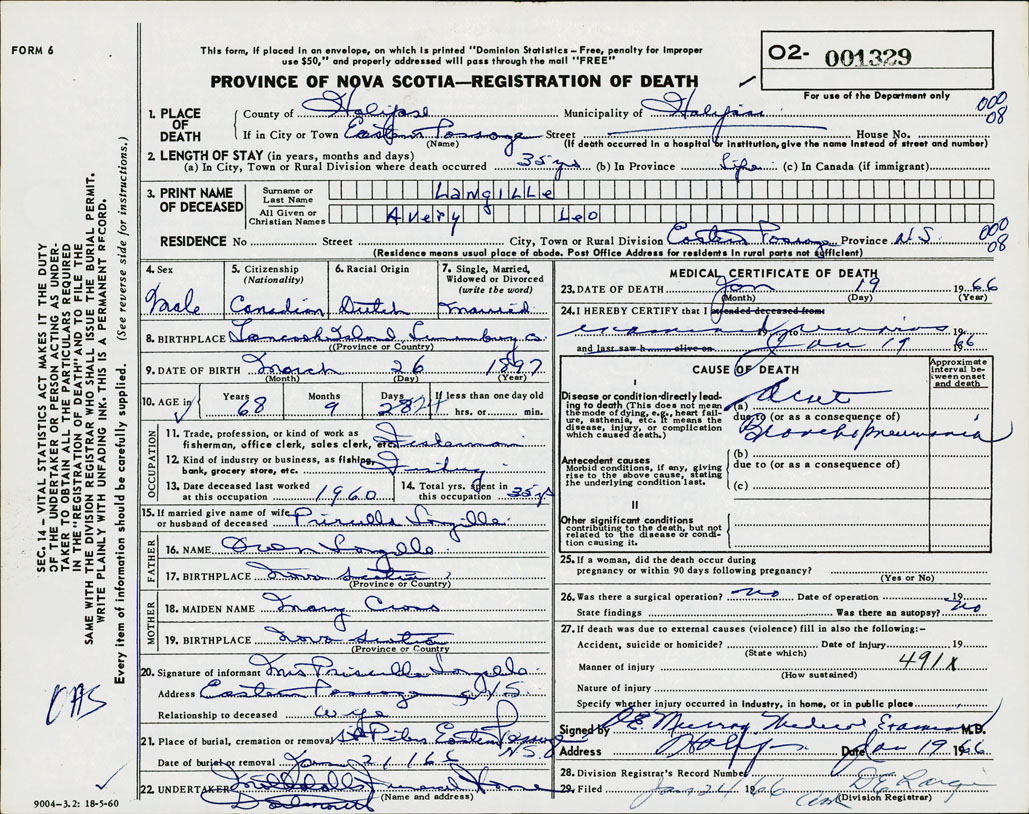 FORM 6
This form, if placed in an envelope, on which is printed "Dominion Statistics – Free, penalty for improper
use $50," and properly addressed will pass through the mail "FREE"
PROVINCE OF NOVA SCOTIA—REGISTRATION OF DEATH
O2- 001329
For use of the Department only
1. PLACE OF DEATH
County of Halifax Municipality of Halifax 000 08
If in City or Town Eastern Passage Street House No.
(Name) (If death occurred in a hospital or institution, give the name instead of street and number)
2. LENGTH OF STAY (in years, months and days)
(a) In City, Town or Rural Division where death occurred 35 yrs (b) In Province Life (c) In Canada (if immigrant)
3. PRINT NAME OF DECEASED
Surname or Last Name LANGILLE
All Given or Christian Names AVERY LEO
RESIDENCE No Street City, Town or Rural Division Eastern Passage Province N.S. 000 08
(Residence means usual place of abode. Post Office Address for residents in rural parts not sufficient)
4. Sex Male
5. Citizenship (Nationality) Canadian
6. Racial Origin Dutch
7. Single, Married, Widowed or Divorced (write the word) Married
8. BIRTHPLACE Tancook Island Lunenburg Co.
(Province or Country)
9. DATE OF BIRTH March 26 1897
(Month) (Day) (Year)
10. AGE in Years 68 Months 9 Days 28 24 If less than one day old hrs. or min.
OCCUPATION
11. Trade, profession, or kind of work as fisherman, office clerk, sales clerk, etc. Fisherman
12. Kind of industry or business, as fishing, bank, grocery store, etc. Fishing
13. Date deceased last worked at this occupation 1960
14. Total yrs. spent in this occupation 35 yrs
15. If married give name of wife or husband of deceased Priscilla Langille
FATHER
16. NAME Langille
17. BIRTHPLACE Nova Scotia
(Province or Country)
MOTHER
18. MAIDEN NAME Mary Cross
19. BIRTHPLACE Nova Scotia
(Province or Country)
20. Signature of informant Mrs Priscilla Langille
Address Eastern Passage N/S
Relationship to deceased wife
21. Place of burial, cremation or removal St Peters Eastern Passage N.S.
Date of burial or removal Jan 21 66
22. UNDERTAKER Funeral Home
Dartmouth (Name and address)
MEDICAL CERTIFICATE OF DEATH
23. DATE OF DEATH Jan 19 1966
(Month) (Day) (Year)
24. I HEREBY CERTIFY that I attended deceased from
examined remains 19
and last saw h alive on Jan 19 1966
CAUSE OF DEATH
Approximate interval between onset and death
I
Disease or condition directly leading to death (This does not mean the mode of dying, e.g., heart failure, asthenia, etc. It means the disease, injury, or complication which caused death.)
(a) Acute
due to (or as a consequence of)
Bronchopneumonia
Antecedent causes
Morbid conditions, if any, giving rise to the above cause, stating the underlying condition last.
(b)
due to (or as a consequence of)
(c)
II
Other significant conditions contributing to the death, but not related to the disease or condition causing it.
25. If a woman, did the death occur during pregnancy or within 90 days following pregnancy?
(Yes or No)
26. Was there a surgical operation? no Date of operation 19
State findings Was there an autopsy? no
27. If death was due to external causes (violence) fill in also the following:–
Accident, suicide or homicide? Date of injury 19
(State which)
Manner of injury 491X
(How sustained)
Nature of injury
Specify whether injury occurred in industry, in home, or in public place
Signed by D.E. Murray Medical Examiner M.D.
Address Halifax Date Jan 19 1966
28. Division Registrar's Record Number
29. Filed Jan 24 1966
(Division Registrar)
SEC. 14 – VITAL STATISTICS ACT MAKES IT THE DUTY
OF THE UNDERTAKER OR PERSON ACTING AS UNDER-
TAKER TO OBTAIN ALL THE PARTICULARS REQUIRED
IN THE "REGISTRATION OF DEATH" AND TO FILE THE
SAME WITH THE DIVISION REGISTRAR WHO SHALL ISSUE THE BURIAL PERMIT.
WRITE PLAINLY WITH UNFADING INK. THIS IS A PERMANENT RECORD.
Every item of information should be carefully supplied. (See reverse side for instructions.)
OAS
9004–3.2: 18-5-60